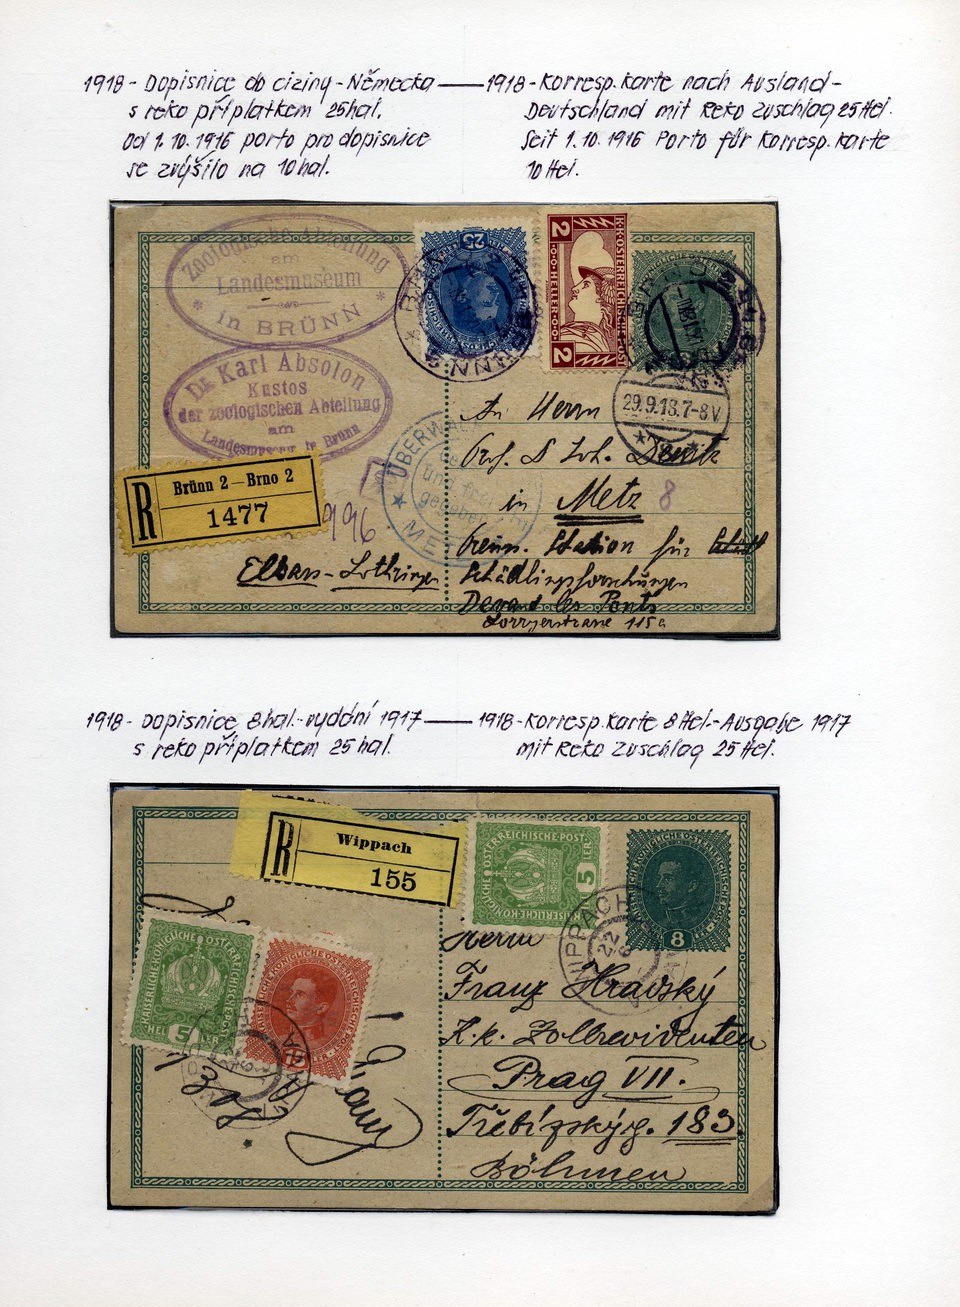 1918 - Dopisnice do ciziny - Německa
s reko příplatkem 25hal.
Od 1.10.1916 porto pro dopisnice
se zvýšilo na 10hal.
1918 - Korresp. Karte nach Ausland -
Deutschland mit Reko Zuschlag 25 Hel.
Seit 1.10.1916 Porto für Korresp. Karte
10 Hel.
Zoologische Abteilung
am
Landesmuseum
in BRÜNN
Dr. Karl Absolon
Kustos
der zoologischen Abteilung
am
Landesmuseum in Brünn
25
2 2
K.K. ÖSTERREICHISCHE POST
HELLER
29.9.18.7-8V
ÜBERWA
gegeben
An Herrn
Prof.
in Metz 8
Station für
Schädlingsforschungen
Devant les Ponts
Lorryerstrasse 115a
Elsass-Lothringen
R
Brünn 2 — Brno 2
1477
996
1918 - Dopisnice 8hal. - vydání 1917
s reko příplatkem 25hal.
1918 - Korresp. Karte 8 Hel. - Ausgabe 1917
mit Reko Zuschlag 25 Hel.
R
Wippach
155
KAISERLICHE KÖNIGLICHE ÖSTERREICHISCHE POST
5
8
WIPPACH
22
6
KAISERLICHE KÖNIGLICHE ÖSTERREICHISCHE POST
HEL 5 LER
Herrn
Franz Hravský
K.k. Zollrevidenten
Prag VII.
Třebízskýg. 183
Böhmen